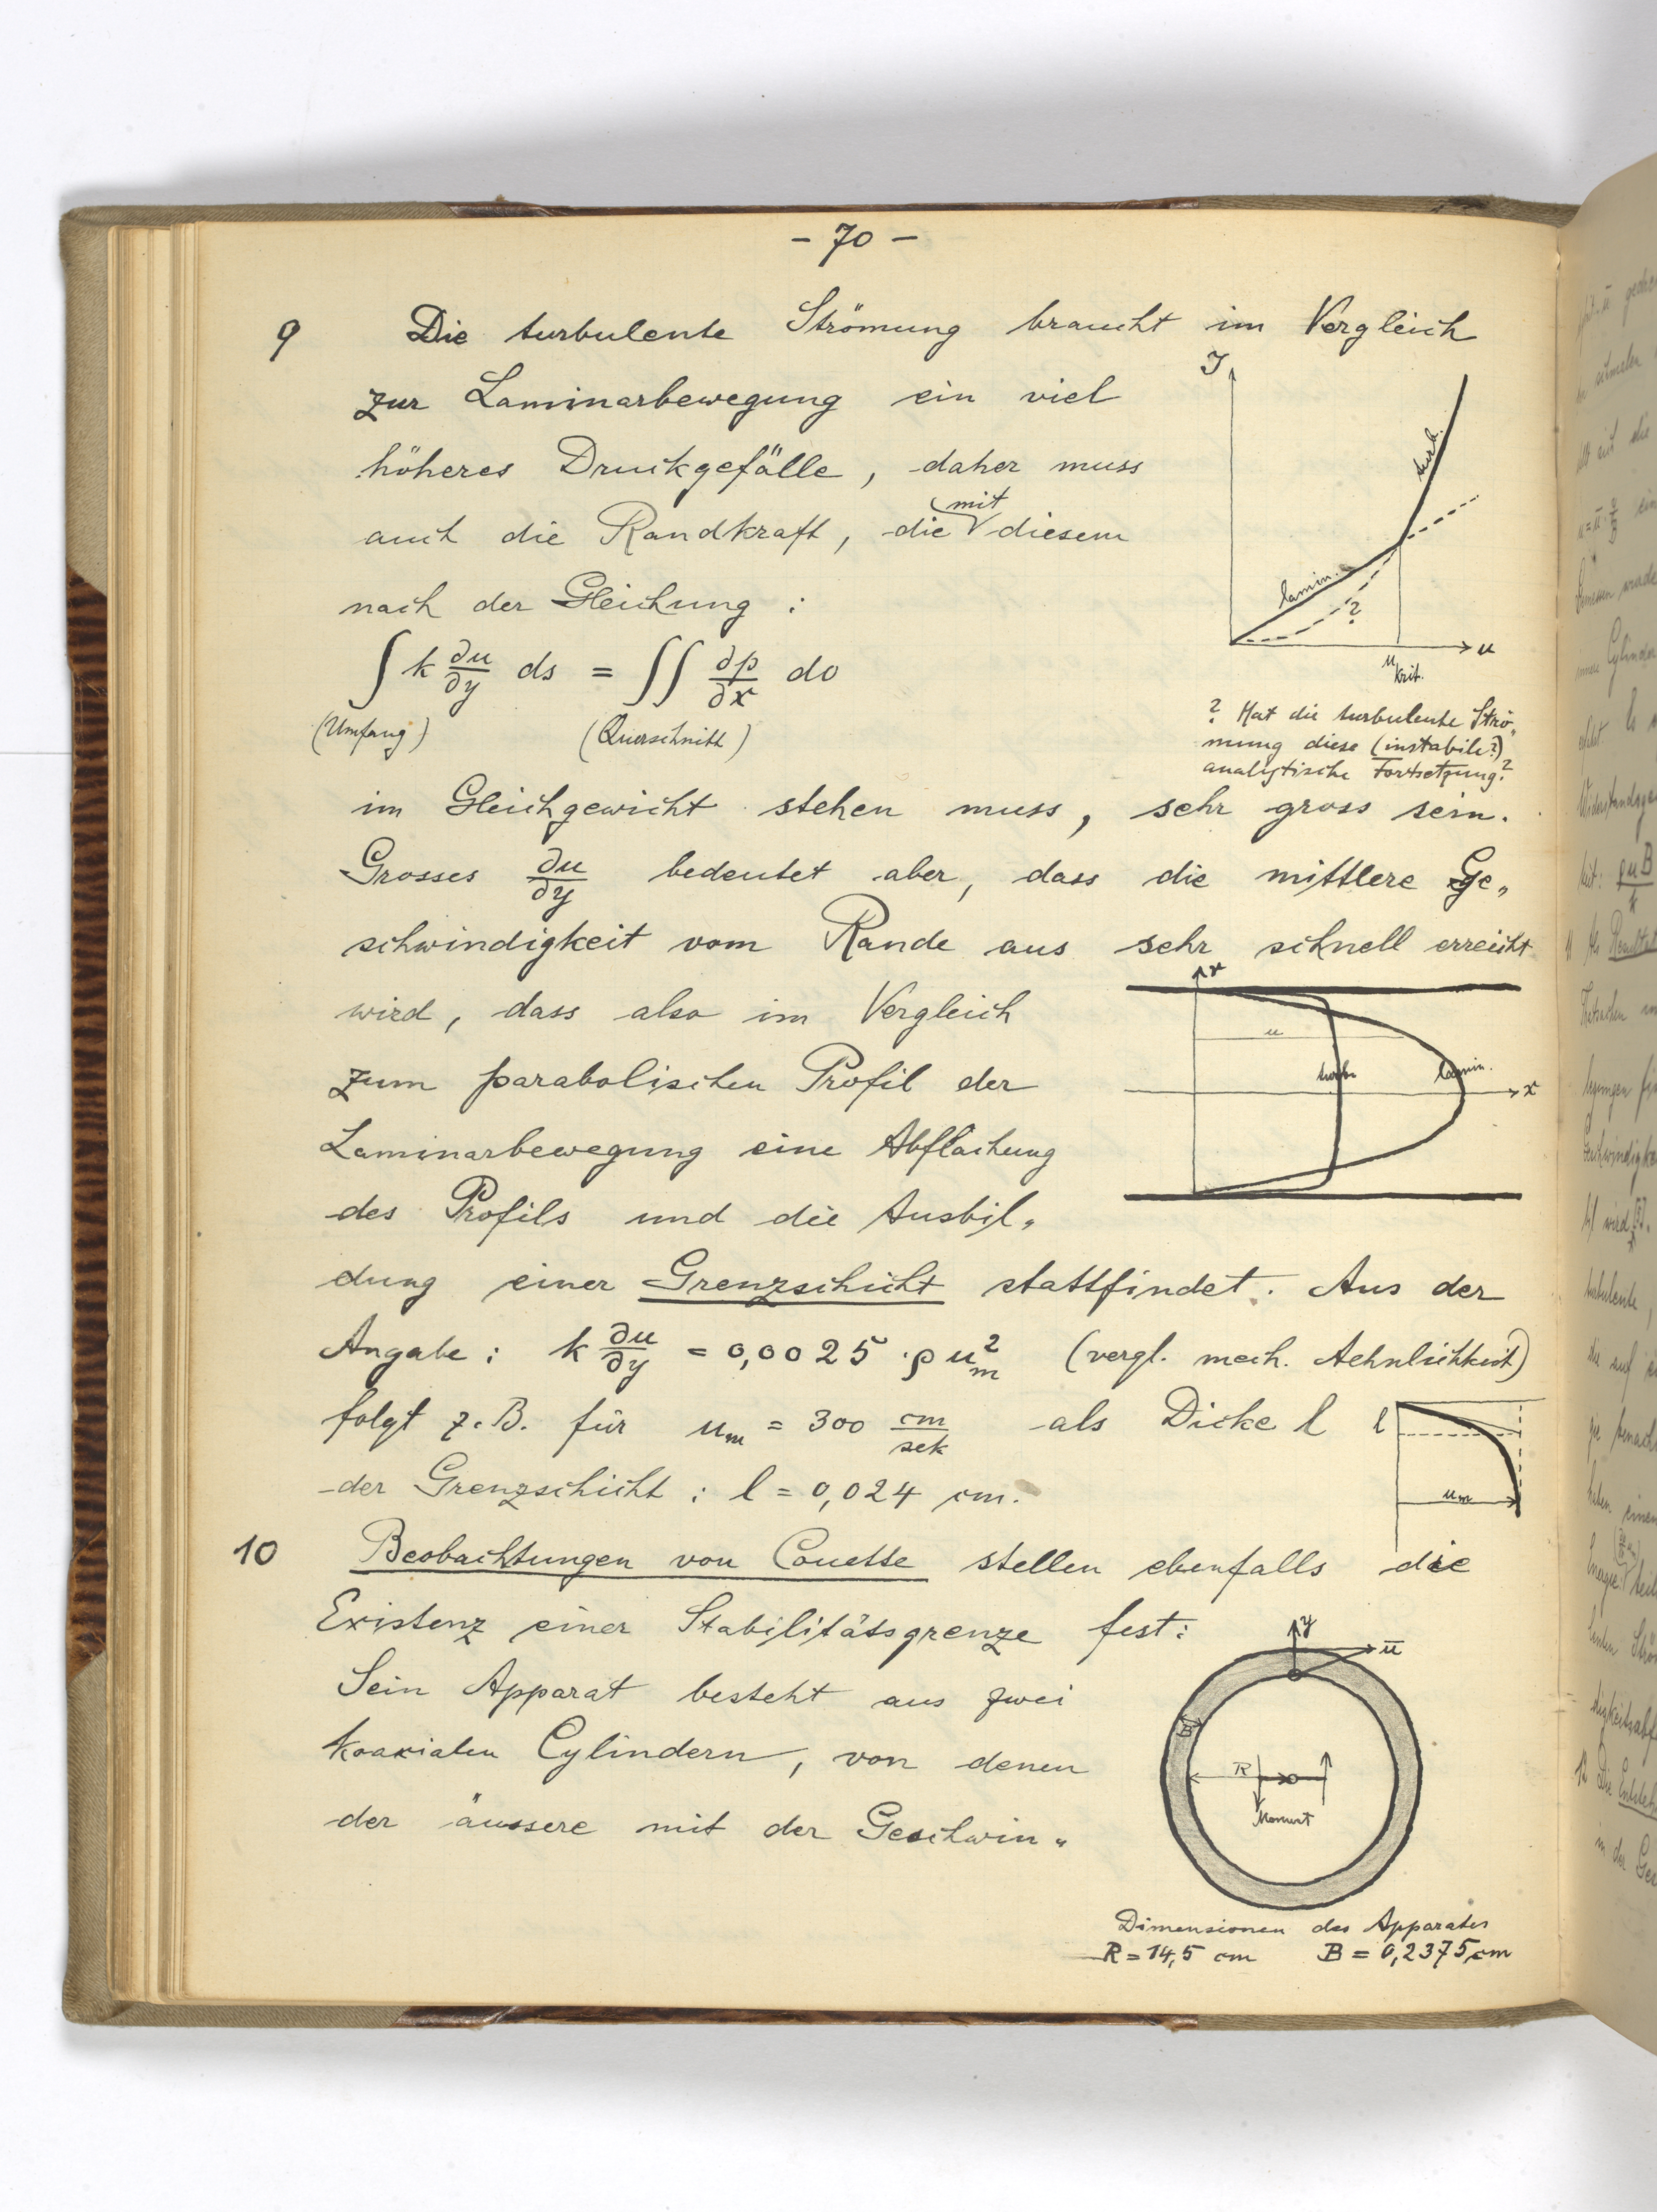 - 70 -
9 Die turbulente Strömung braucht im Vergleich
zur Laminarbewegung ein viel
höheres Druckgefälle, daher muss
mit
auch die Randkraft, die diesem
nach der Gleichung :
∫ k ∂u/∂y ds = ∫∫ ∂p/∂x do
(Umfang) (Querschnitt)
J
turb.
lamin.
?
u
u krit.
? Hat die turbulente Strö„
mung diese (instabile?)
analytische Fortsetzung?
im Gleichgewicht stehen muss, sehr gross sein.
Grosses ∂u/∂y bedeutet aber, dass die mittlere Ge„
schwindigkeit vom Rande aus sehr schnell erreicht
wird, dass also im Vergleich
zum parabolischen Profil der
Laminarbewegung eine Abflachung
des Profils und die Ausbil„
u
turb.
lamin.
x
dung einer Grenzschicht stattfindet. Aus der
Angabe : k ∂u/∂y = 0,0025 · ρ u_m² (vergl. mech. Aehnlichkeit)
folgt z.B. für u_m = 300 cm/sek als Dicke l
der Grenzschicht : l = 0,024 cm.
l
u_m
10 Beobachtungen von Couette stellen ebenfalls die
Existenz einer Stabilitätsgrenze fest:
Sein Apparat besteht aus zwei
koaxialen Cylindern, von denen
der äussere mit der Geschwin„
y
ū
B
R
Moment
Dimensionen des Apparates
R = 14,5 cm B = 0,2375 cm